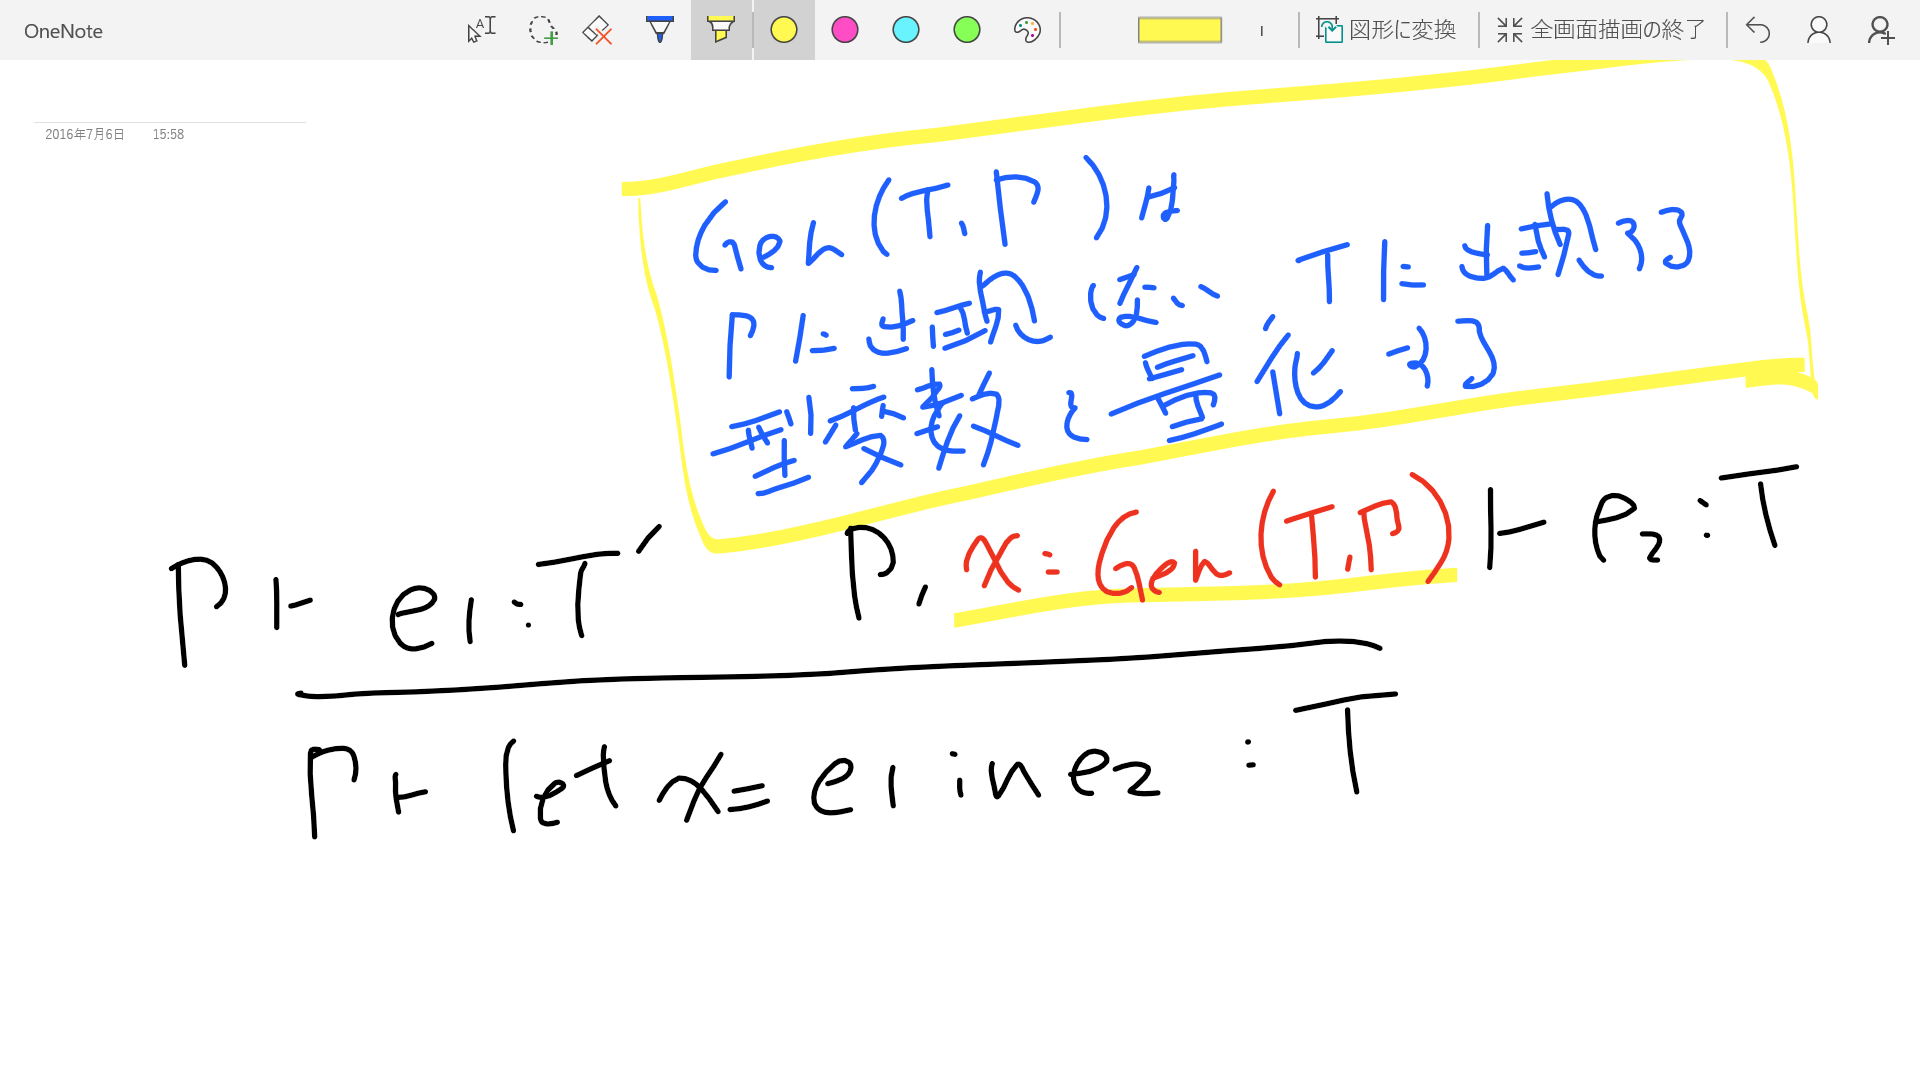 OneNote
図形に変換
全画面描画の終了
2016年7月6日 15:58
Gen(T,Γ)は
Γに出現しない、Tに出現する
型変数を量化する
Γ ⊢ e1 : T′ Γ, x = Gen(T,Γ) ⊢ e2 : T
Γ ⊢ let x = e1 in e2 : T